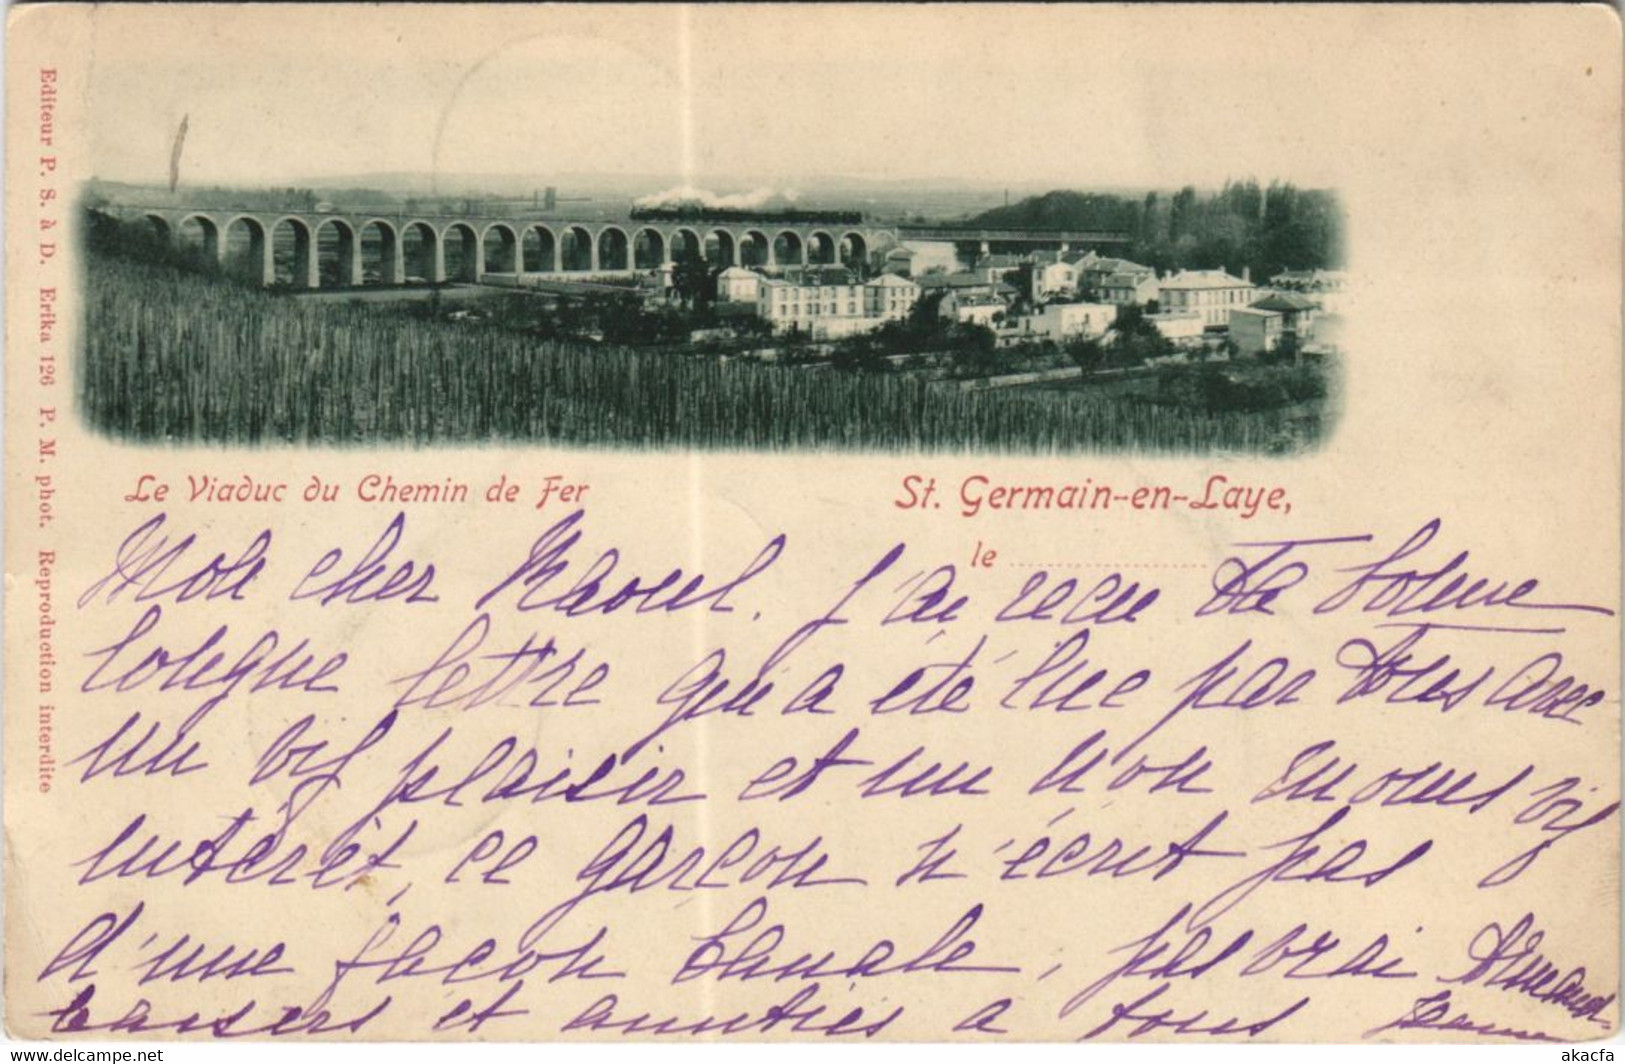 Editeur P. S. à D. Erika 126 P. M. phot. Reproduction interdite
Le Viaduc du Chemin de Fer
St. Germain-en-Laye,
le
Mon cher Raoul. J'ai recu ta bonne
longue lettre qui a été lue par tous avec
un vif plaisir et un non moins vif
intérêt, ce garcon n'écrit pas
d'une facon banale, pas vrai
baisers et amitiés a tous
akacfa
delcampe.net